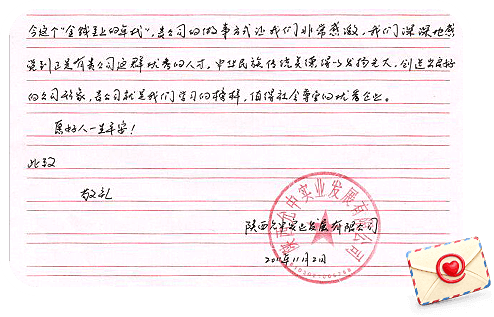 今这个"金钱至上的年代",贵公司的做事方式让我们非常感激,我们深深地感
觉到正是有贵公司这群优秀的人才,中华民族传统美德得以发扬光大,创造出良好
的公司形象,贵公司就是我们学习的榜样,值得社会尊重的优秀企业。
愿好人一生平安!
此致
敬礼
陕西 中实业发展有限公司
2011年11月2日
中实业发展有限公司